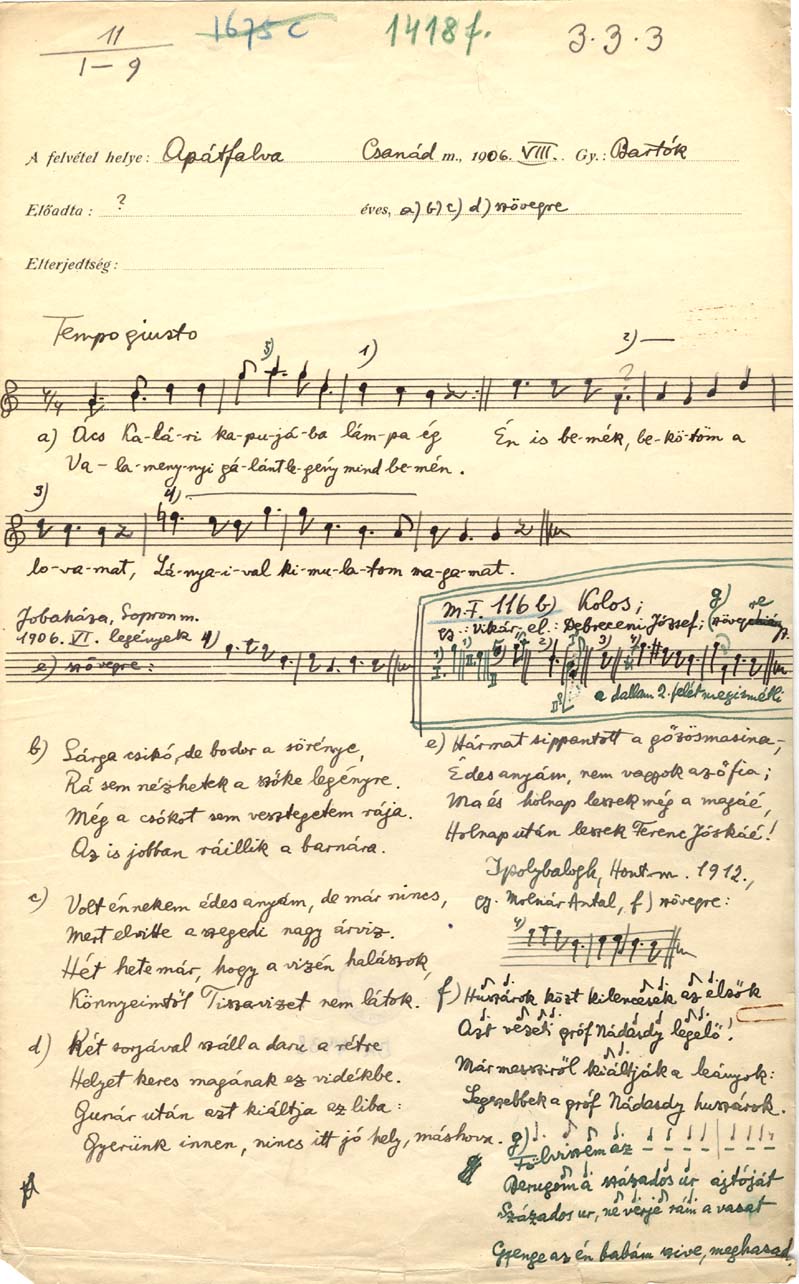 11
I–9
1675 c
1418 f.
3.3.3
A felvétel helye: Apátfalva Csanád m., 1906. VIII. Gy.: Bartók
Előadta: ? éves, a) b) c) d) szövegre
Elterjedtség:
Tempo giusto
5) 1) 2)
a) Ács Ka-lá-ri ka-pu-já-ba lám-pa ég Én is be-mék, be-kö-töm a
Va-la-meny-nyi gá-lánt le-gény mind be-mén.
3) 4)
lo-va-mat, Lá-nya-i-val ki-mu-la-tom ma-ga-mat.
Jobaháza, Sopron m.
1906. VI. legények 4)
e) szövegre:
M.F. 116 b) Kolos;
gy.: Vikár, el.: Debreceni József; g)
a dallam 2. felét megismétli
b) Sárga csikó, de bodor a sörénye,
Rá sem nézhetek a szőke legényre.
Még a csókot sem vesztegetem rája.
Az is jobban ráillik a barnára.
c) Volt énnekem édes anyám, de már nincs,
Mert elvitte a szegedi nagy árviz.
Hét hete már, hogy a vizén halászok,
Könnyeimtől Tiszavizet nem látok.
d) Két sorjával szálla daru a rétre
Helyet keres magának ez vidékbe.
Gunár után azt kiáltja az liba:
Gyerünk innen, nincs itt jó hely, máshova.
e) Hármat sippantott a gőzösmasina,
Édes anyám, nem vagyok az ő fia;
Ma és holnap leszek még a magáé,
Holnap után leszek Ferenc Jóskáé!
Ipolybalogh, Hont m. 1912.,
gy. Molnár Antal, f) szövegre:
4)
f) Huszárok közt kilencesek az elsők
Azt vezeti gróf Nádasdy legelő!
Már messziről kiáltják a leányok:
Legszebbek a gróf Nádasdy huszárok.
g) Fölviszem az
Berugom a százados úr ajtóját
Százados ur, ne verje rám a vasat
Gyenge az én babám szive, meghasad.